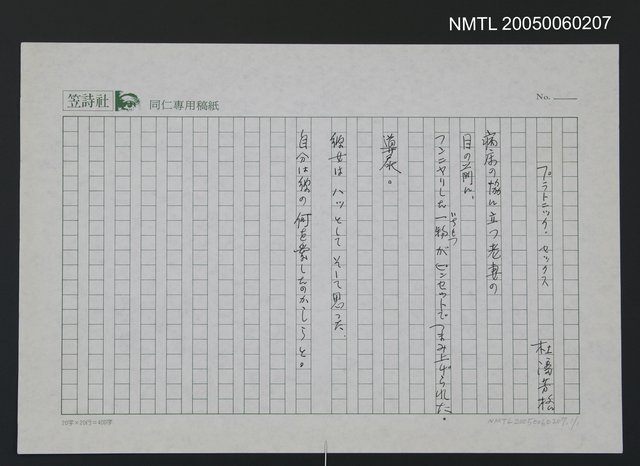 NMTL 20050060207
笠詩社
同仁專用稿紙
No.
プラトニック・セックス
杜潘芳格
病床の脇に立つ老妻の
目の前に、
フンニャリした一物がピンセットでつまみ上げられた。
いちもつ
導尿。
彼女は ハッとして そして思った、
自分は彼の何を愛したのかしらと。
20字×20行=400字
NMTL20050060207.1/1